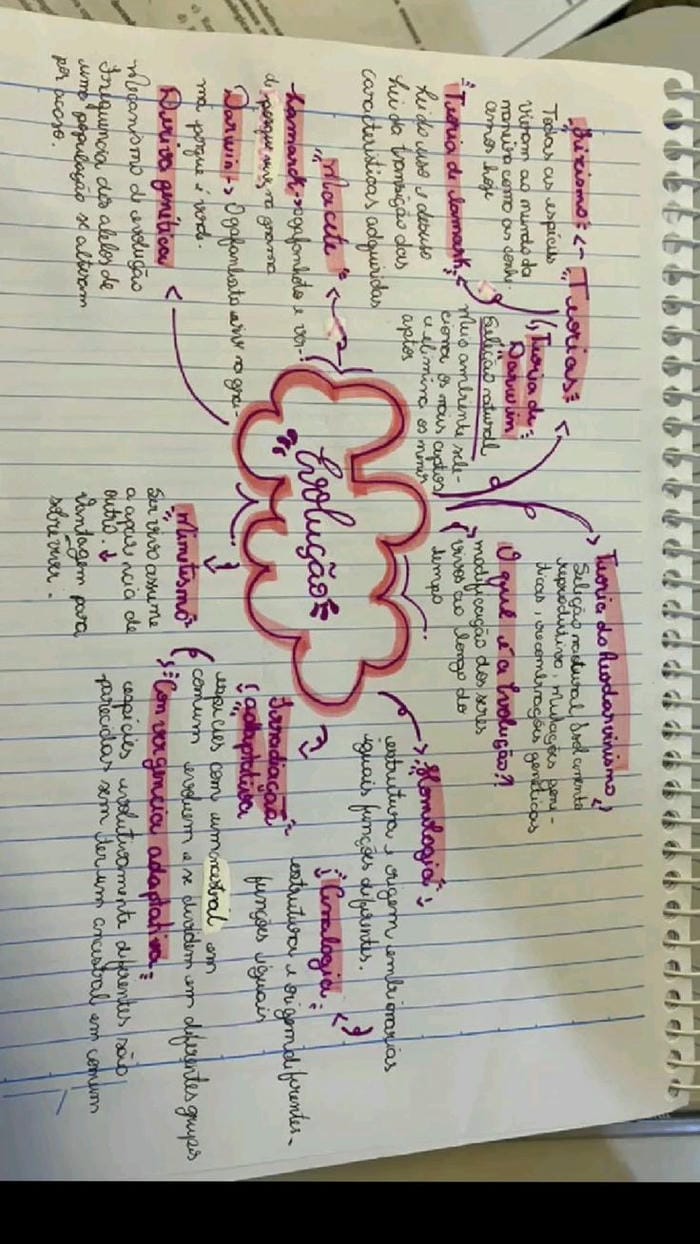 Teorias
Fixismo
Todas as espécies
vieram ao mundo da
maneira como as conhe-
cemos hoje
Teoria de lamark
Lei do uso e desuso
Lei da transição das
características adquiridas
Teoria de
Darwin
Seleção natural
Meio ambiente sele-
ciona os mais aptos
e elimina os menos
aptos
Teoria do Neodarwinismo
Seleção natural, Isolamento
reprodutivo, Mutações gené-
ticas, recombinações genéticas
O que é a Evolução?
modificação dos seres
vivos ao longo do
tempo
Evolução
Macete
Lamarck → o gafanhoto é ver-
de porque vive na grama
Darwin → O gafanhoto vive na gra-
ma porque é verde.
Deriva genética
Mecanismo de evolução
Frequência dos alelos de
uma população se alteram
por acaso.
Mimetismo
Ser vivo assume
a aparência de
outro. ↓
Vantagem para
sobreviver.
Homologia
estrutura e origem embrionárias
iguais funções diferentes.
Analogia
estrutura e origem diferentes
funções iguais
Irradiação
adaptativa
espécies com um ancestral em
comum evoluem e se dividem em diferentes grupos
Convergência adaptativa
espécies evolutivamente diferentes são
parecidas sem ter um ancestral em comum